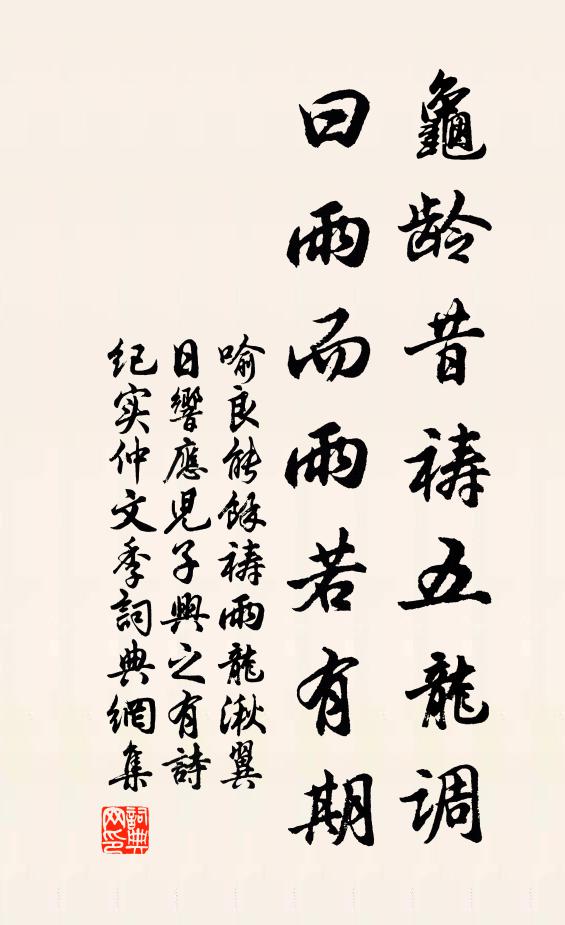 龜龄昔祷五龍调
曰雨而雨若有期
喻良能餘祷雨龍湫翼
日響應児子興之有詩
纪实仲文季詞典網集
詞典网印